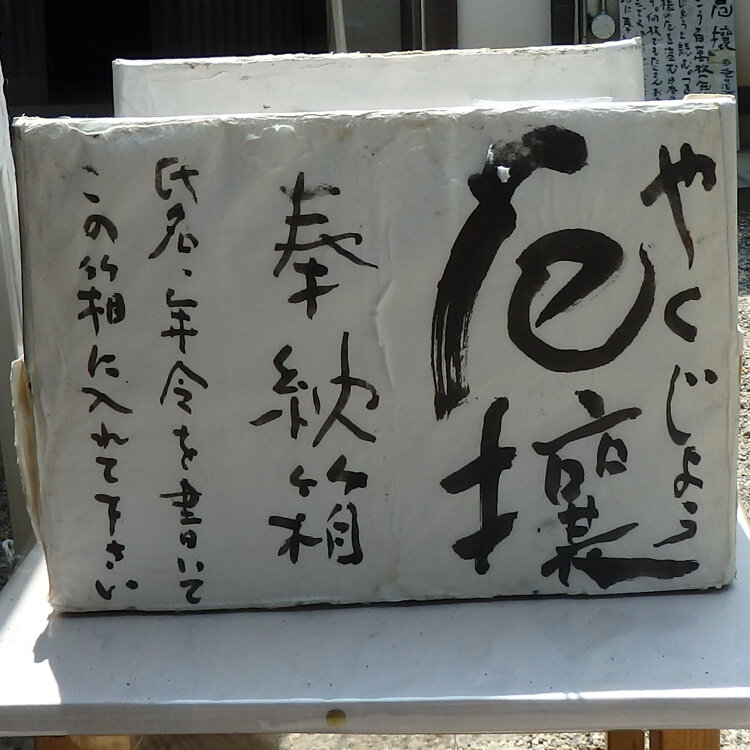 やくじょう
厄攘
奉納箱
氏名、年令を書いて
この箱に入れて下さい
厄攘